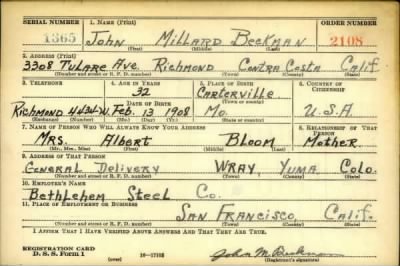 SERIAL NUMBER 1. NAME (Print) ORDER NUMBER
1365 John Millard Beckman 2108
(First) (Middle) (Last)
2. ADDRESS (Print)
3308 Tulare Ave. Richmond Contra Costa Calif
(Number and street or R. F. D. number) (Town) (County) (State)
3. TELEPHONE 4. AGE IN YEARS 5. PLACE OF BIRTH 6. COUNTRY OF CITIZENSHIP
32 Carterville
DATE OF BIRTH (Town or county)
Richmond 4434-W Feb. 13 1908 Mo. U.S.A.
(Exchange) (Number) (Mo.) (Day) (Yr.) (State or country)
7. NAME OF PERSON WHO WILL ALWAYS KNOW YOUR ADDRESS 8. RELATIONSHIP OF THAT PERSON
Mrs. Albert Bloom Mother
(Mr., Mrs., Miss) (First) (Middle) (Last)
9. ADDRESS OF THAT PERSON
General Delivery Wray, Yuma, Colo.
(Number and street or R. F. D. number) (Town) (County) (State)
10. EMPLOYER'S NAME
Bethlehem Steel Co.
11. PLACE OF EMPLOYMENT OR BUSINESS
San Francisco, Calif.
(Number and street or R. F. D. number) (Town) (County) (State)
I AFFIRM THAT I HAVE VERIFIED ABOVE ANSWERS AND THAT THEY ARE TRUE.
REGISTRATION CARD
D. S. S. Form 1 (over) 16—17105 John M Beckman
(Registrant's signature)